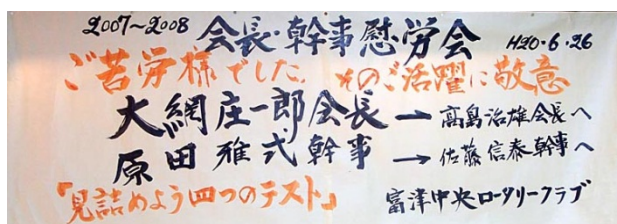 2007~2008 会長・幹事慰労会 H20・6・26
ご苦労様でした。そのご活躍に敬意
大網庄一郎会長→高島治雄会長へ
原田雅弌幹事→佐藤信泰幹事へ
「見詰めよう四つのテスト」 富津中央ロータリークラブ